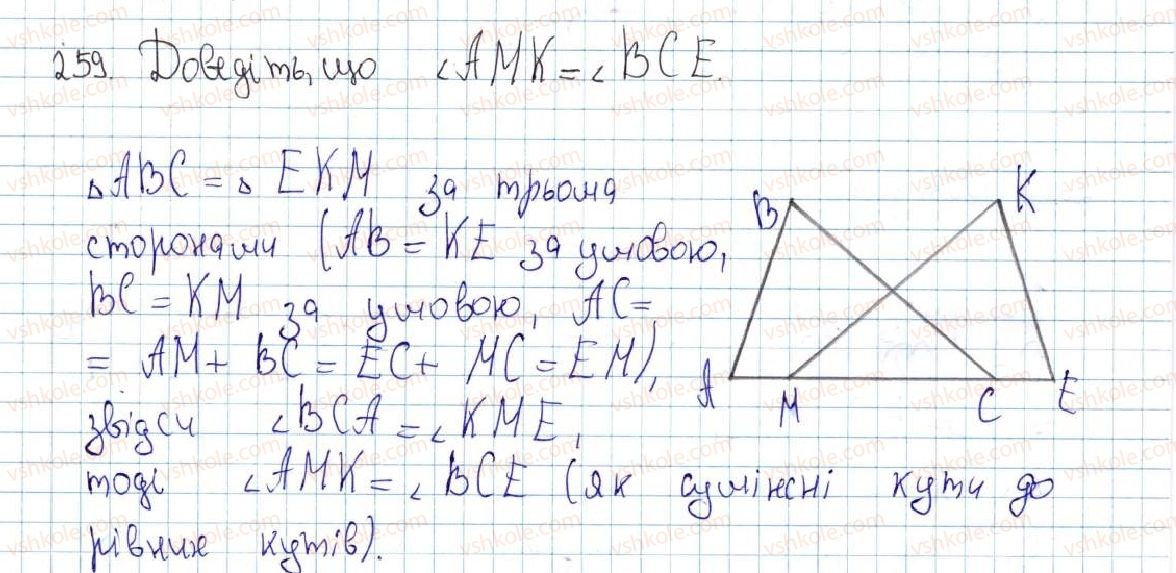 259. Доведіть, що ∠AMK = ∠BCE.
△ABC = △EKM за трьома
сторонами (AB = KE за умовою,
BC = KM за умовою, AC =
= AM + BC = EC + MC = EM),
звідси ∠BCA = ∠KME,
тоді ∠AMK = ∠BCE (як суміжні кути до
рівних кутів).
B K
A M C E
vshkole.com